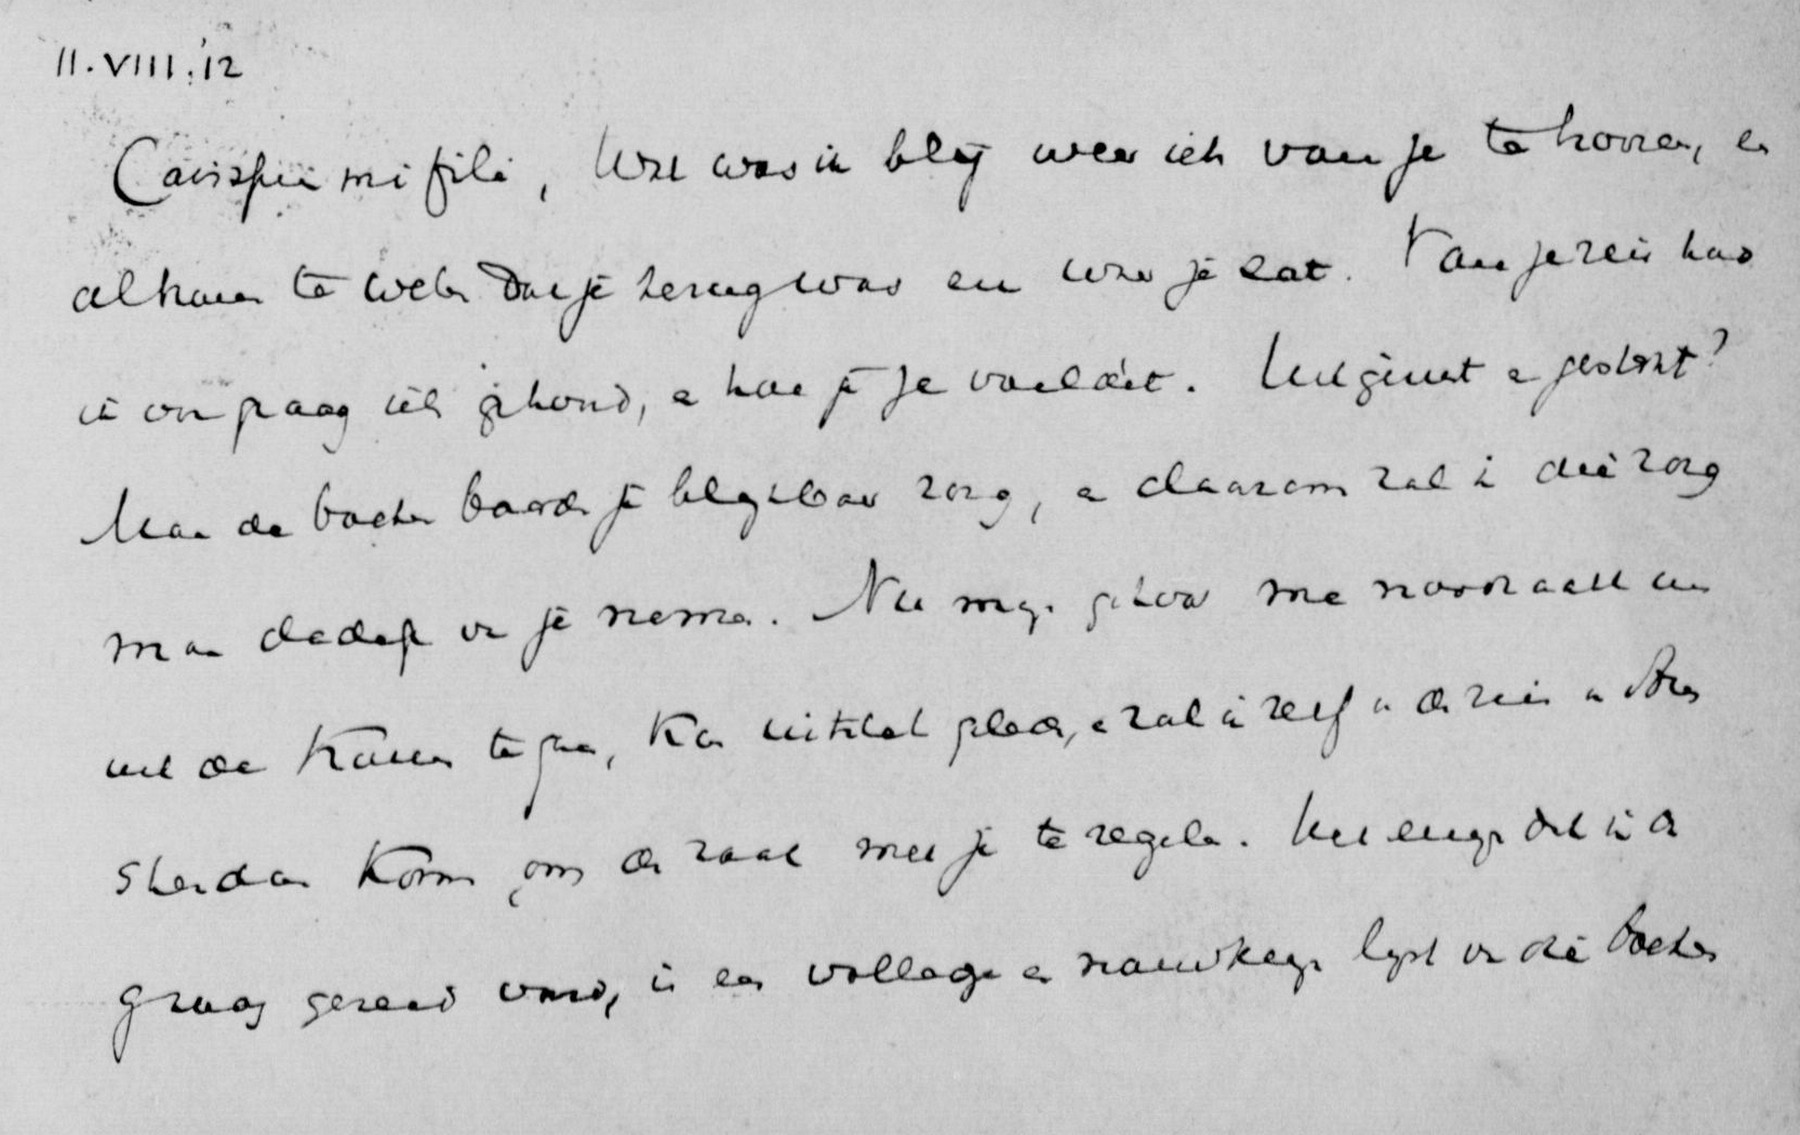 11.VIII.'12
Crispin mi fili, Wat was ik blij weer iets van je te hooren, en
alleen te weten dat je terug was en waar je zat. Van je reis had
ik ook graag iets gehoord, en hoe jij je voeldet. Uitgerust en gesterkt?
Maar de boeken baarden je blijkbaar zorg, en daarom zal ik die zorg
maar dadelijk van je nemen. Nu mijn gehoor me noodzaakt om
uit de Kamer te gaan, kan uitstel gelden, en zal ik zelf in de reis in Am
sterdam komen om de zaak met je te regelen. Het eenige dat ik
graag gereed vond, is een volledige en nauwkeurige lijst van die boeken